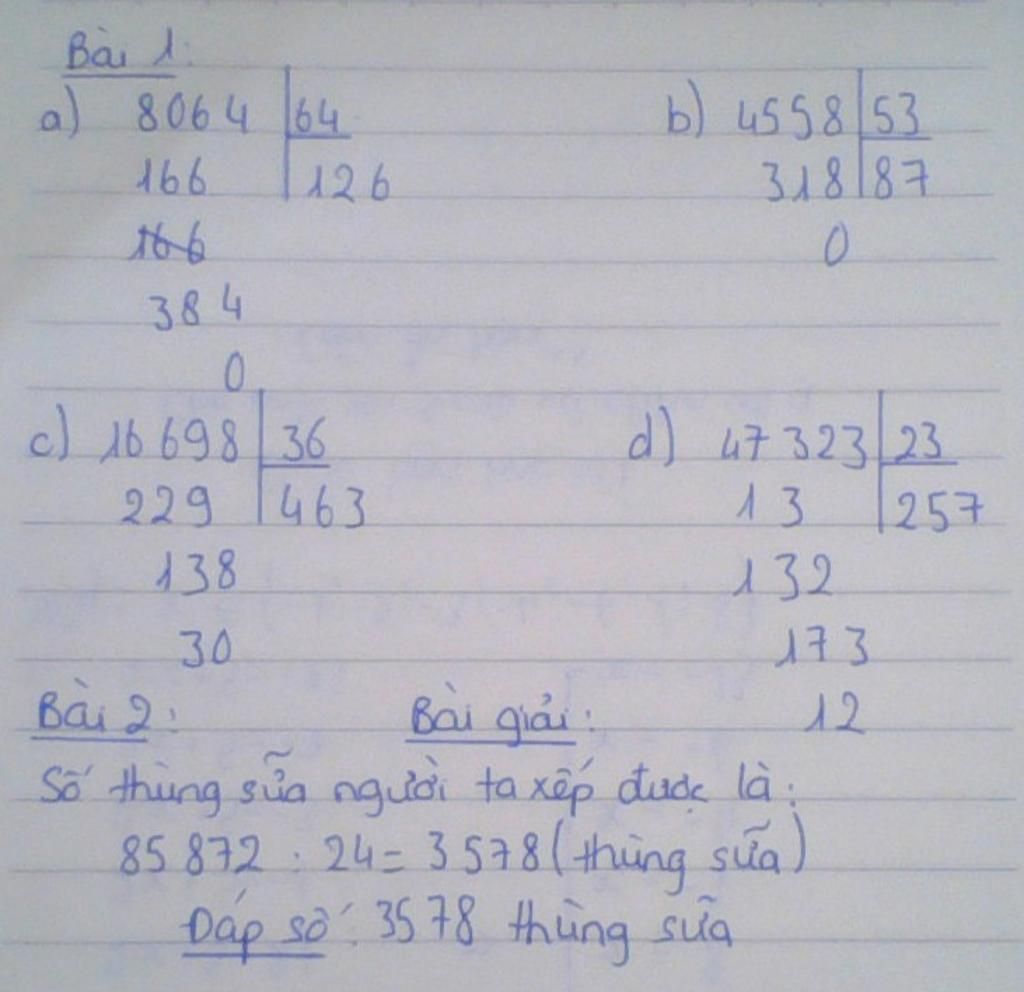 Bài 1:
a) 8064 64 b) 4558 53
166 126 318 87
166 0
384
0
c) 16 698 36 d) 47 323 23
229 463 13 257
138 132
30 173
Bài 2: Bài giải: 12
Số thùng sữa người ta xếp được là:
85 872 : 24 = 3 578 (thùng sữa)
Đáp số: 3578 thùng sữa